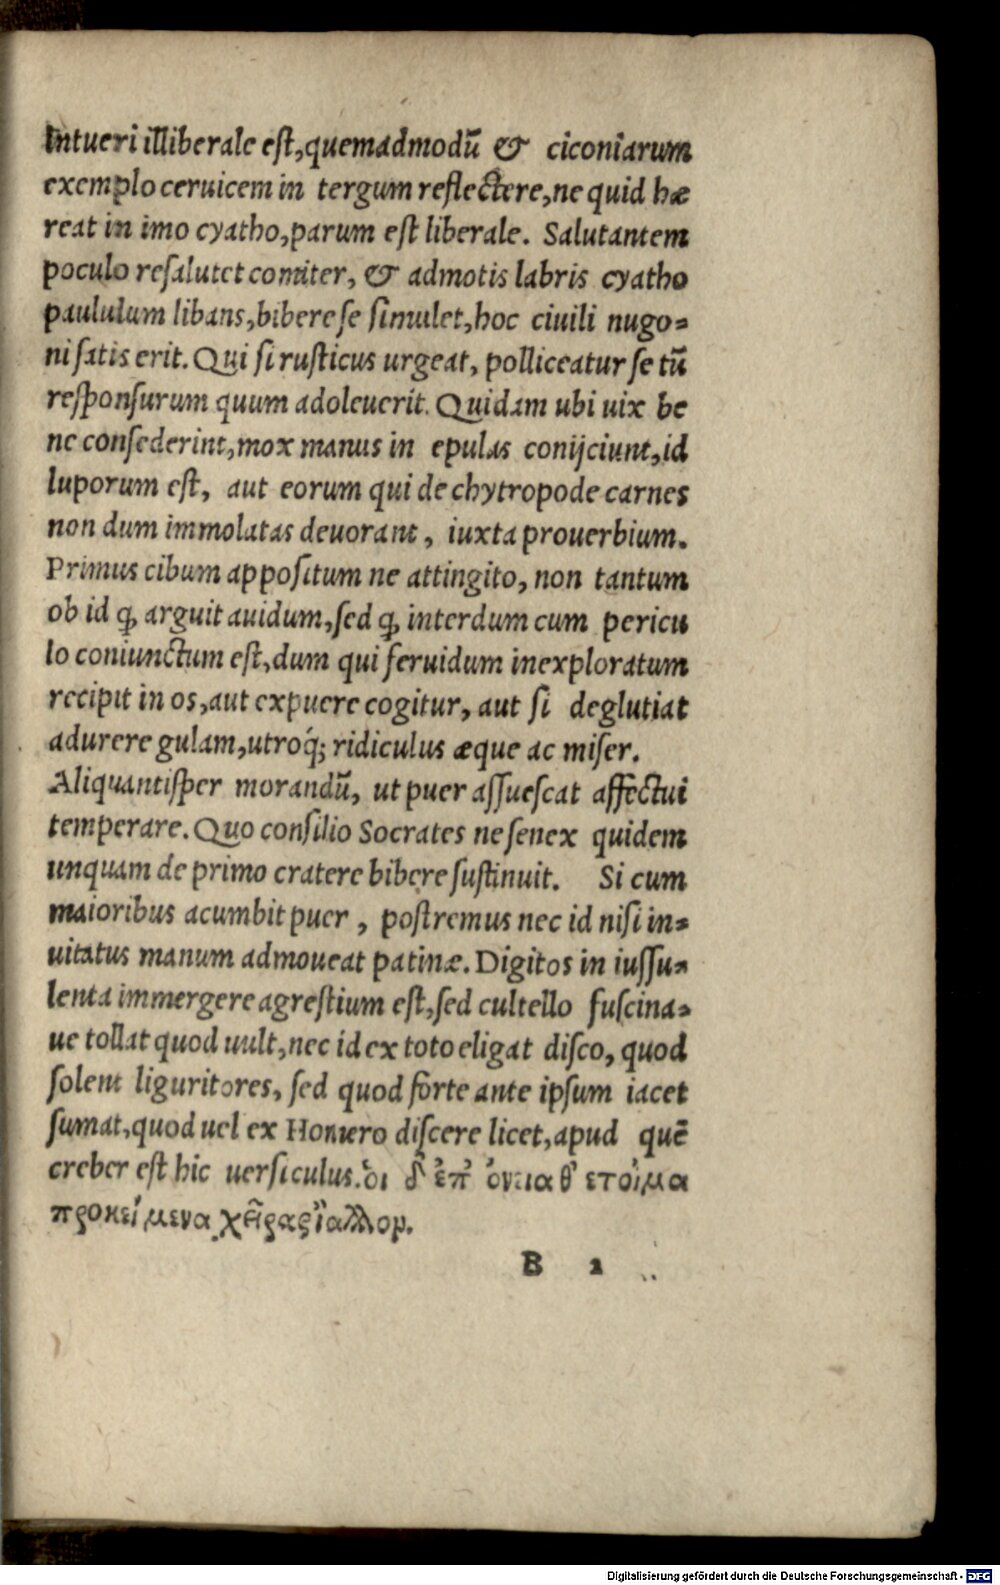 Intueri illiberale est, quemadmodū & ciconiarum
exemplo ceruicem in tergum reflectere, ne quid hæ
reat in imo cyatho, parum est liberale. Salutantem
poculo resalutet comiter, & admotis labris cyatho
paululum libans, bibere se simulet, hoc ciuili nugo=
ni satis erit. Qui si rusticus urgeat, polliceatur se tū
responsurum quum adoleuerit. Quidam ubi uix be
ne consederint, mox manus in epulas conijciunt, id
luporum est, aut eorum qui de chytropode carnes
non dum immolatas deuorant, iuxta prouerbium.
Primus cibum appositum ne attingito, non tantum
ob id ꝙ arguit auidum, sed ꝙ interdum cum pericu
lo coniunctum est, dum qui feruidum inexploratum
recipit in os, aut expuere cogitur, aut si deglutiat
adurere gulam, utroq́; ridiculus æque ac miser.
Aliquantisper morandū, ut puer assuescat affectui
temperare. Quo consilio Socrates ne senex quidem
unquam de primo cratere bibere sustinuit. Si cum
maioribus acumbit puer, postremus nec id nisi in=
uitatus manum admoueat patinæ. Digitos in iussu=
lenta immergere agrestium est, sed cultello fuscina=
ue tollat quod uult, nec id ex toto eligat disco, quod
solent liguritores, sed quod forte ante ipsum iacet
sumat, quod uel ex Homero discere licet, apud quē
creber est hic uersiculus. ὁι δ' ἐπ' ὀνειαθ' ετοῖμα
προκείμενα χεῖρας ἴαλλον.
B 2
Digitalisierung gefördert durch die Deutsche Forschungsgemeinschaft - DFG